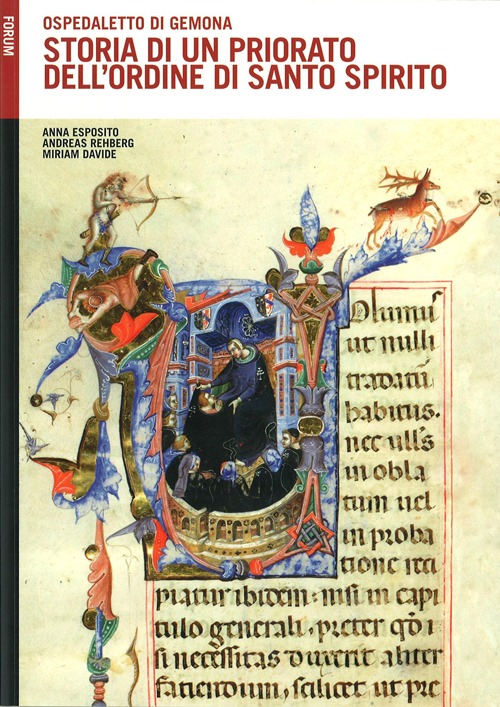 FORUM
OSPEDALETTO DI GEMONA
STORIA DI UN PRIORATO
DELL'ORDINE DI SANTO SPIRITO
ANNA ESPOSITO
ANDREAS REHBERG
MIRIAM DAVIDE
Volumus
ut nulli
tradatũ
habitus.
nec ulls
in obla
tum uel
in proba
tione reci
piatur ibidem: nisi in capi
tulo generali, preter qđ i
si necessitas duxerit aliter
fatiendum, scilicet ut pre